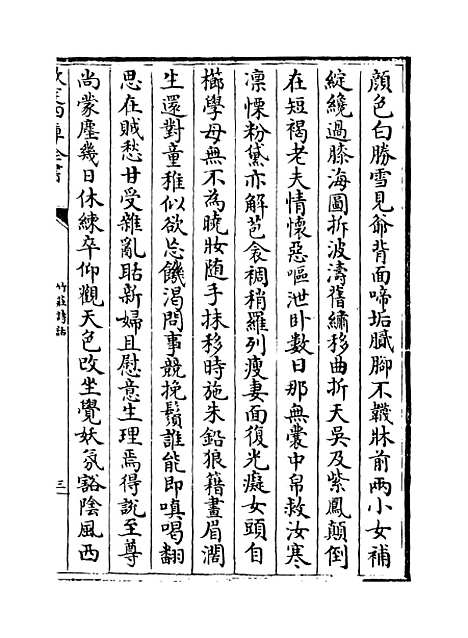 顔色白勝雪見爺背面啼垢膩脚不韈牀前兩小女補
綻纔過膝海圖拆波濤舊繡移曲折天吳及紫鳳顛倒
在短褐老夫情懷惡嘔泄卧數日那無囊中帛救汝寒
凛慄粉黛亦解苞衾裯稍羅列瘦妻面復光癡女頭自
櫛學母無不為曉妝随手抹移時施朱鉛狼籍畫眉濶
生還對童稚似欲忘饑渴問事競挽鬚誰能即嗔喝翻
思在賊愁甘受雜亂聒新婦且慰意生理焉得説至尊
尚蒙塵幾日休練卒仰觀天色改坐覺妖氛豁陰風西
竹莊詩話
三